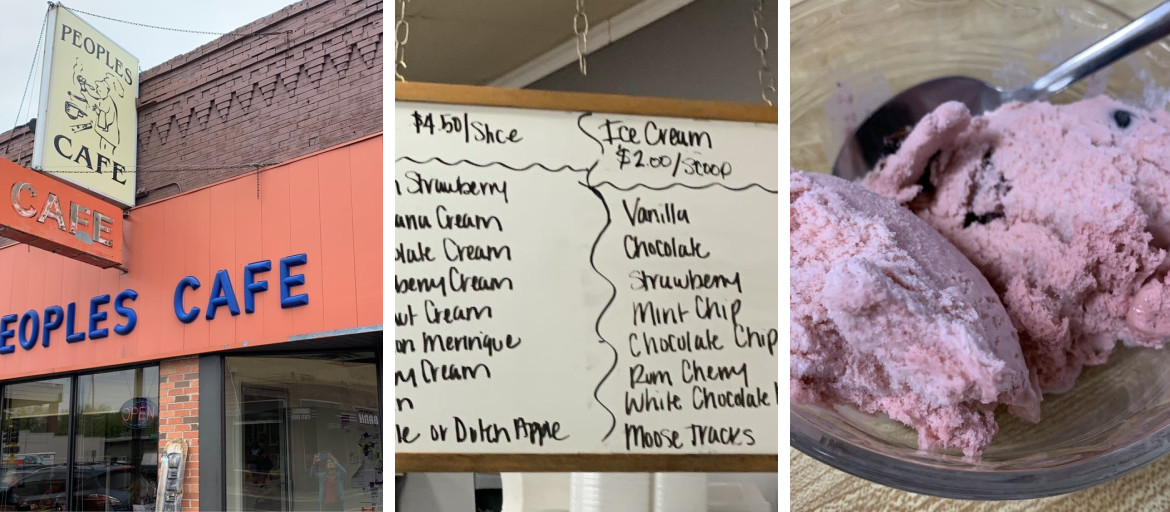 PEOPLES
CAFE
CAFE
EOPLES CAFE
OPEN
$4.50/Slice
Strawberry
Cream
Cream
Cream
Cream
Meringue
Cream
or Dutch Apple
Ice Cream
$2.00/Scoop
Vanilla
Chocolate
Strawberry
Mint Chip
Chocolate Chip
Rum Cherry
White Chocolate
Moose Tracks